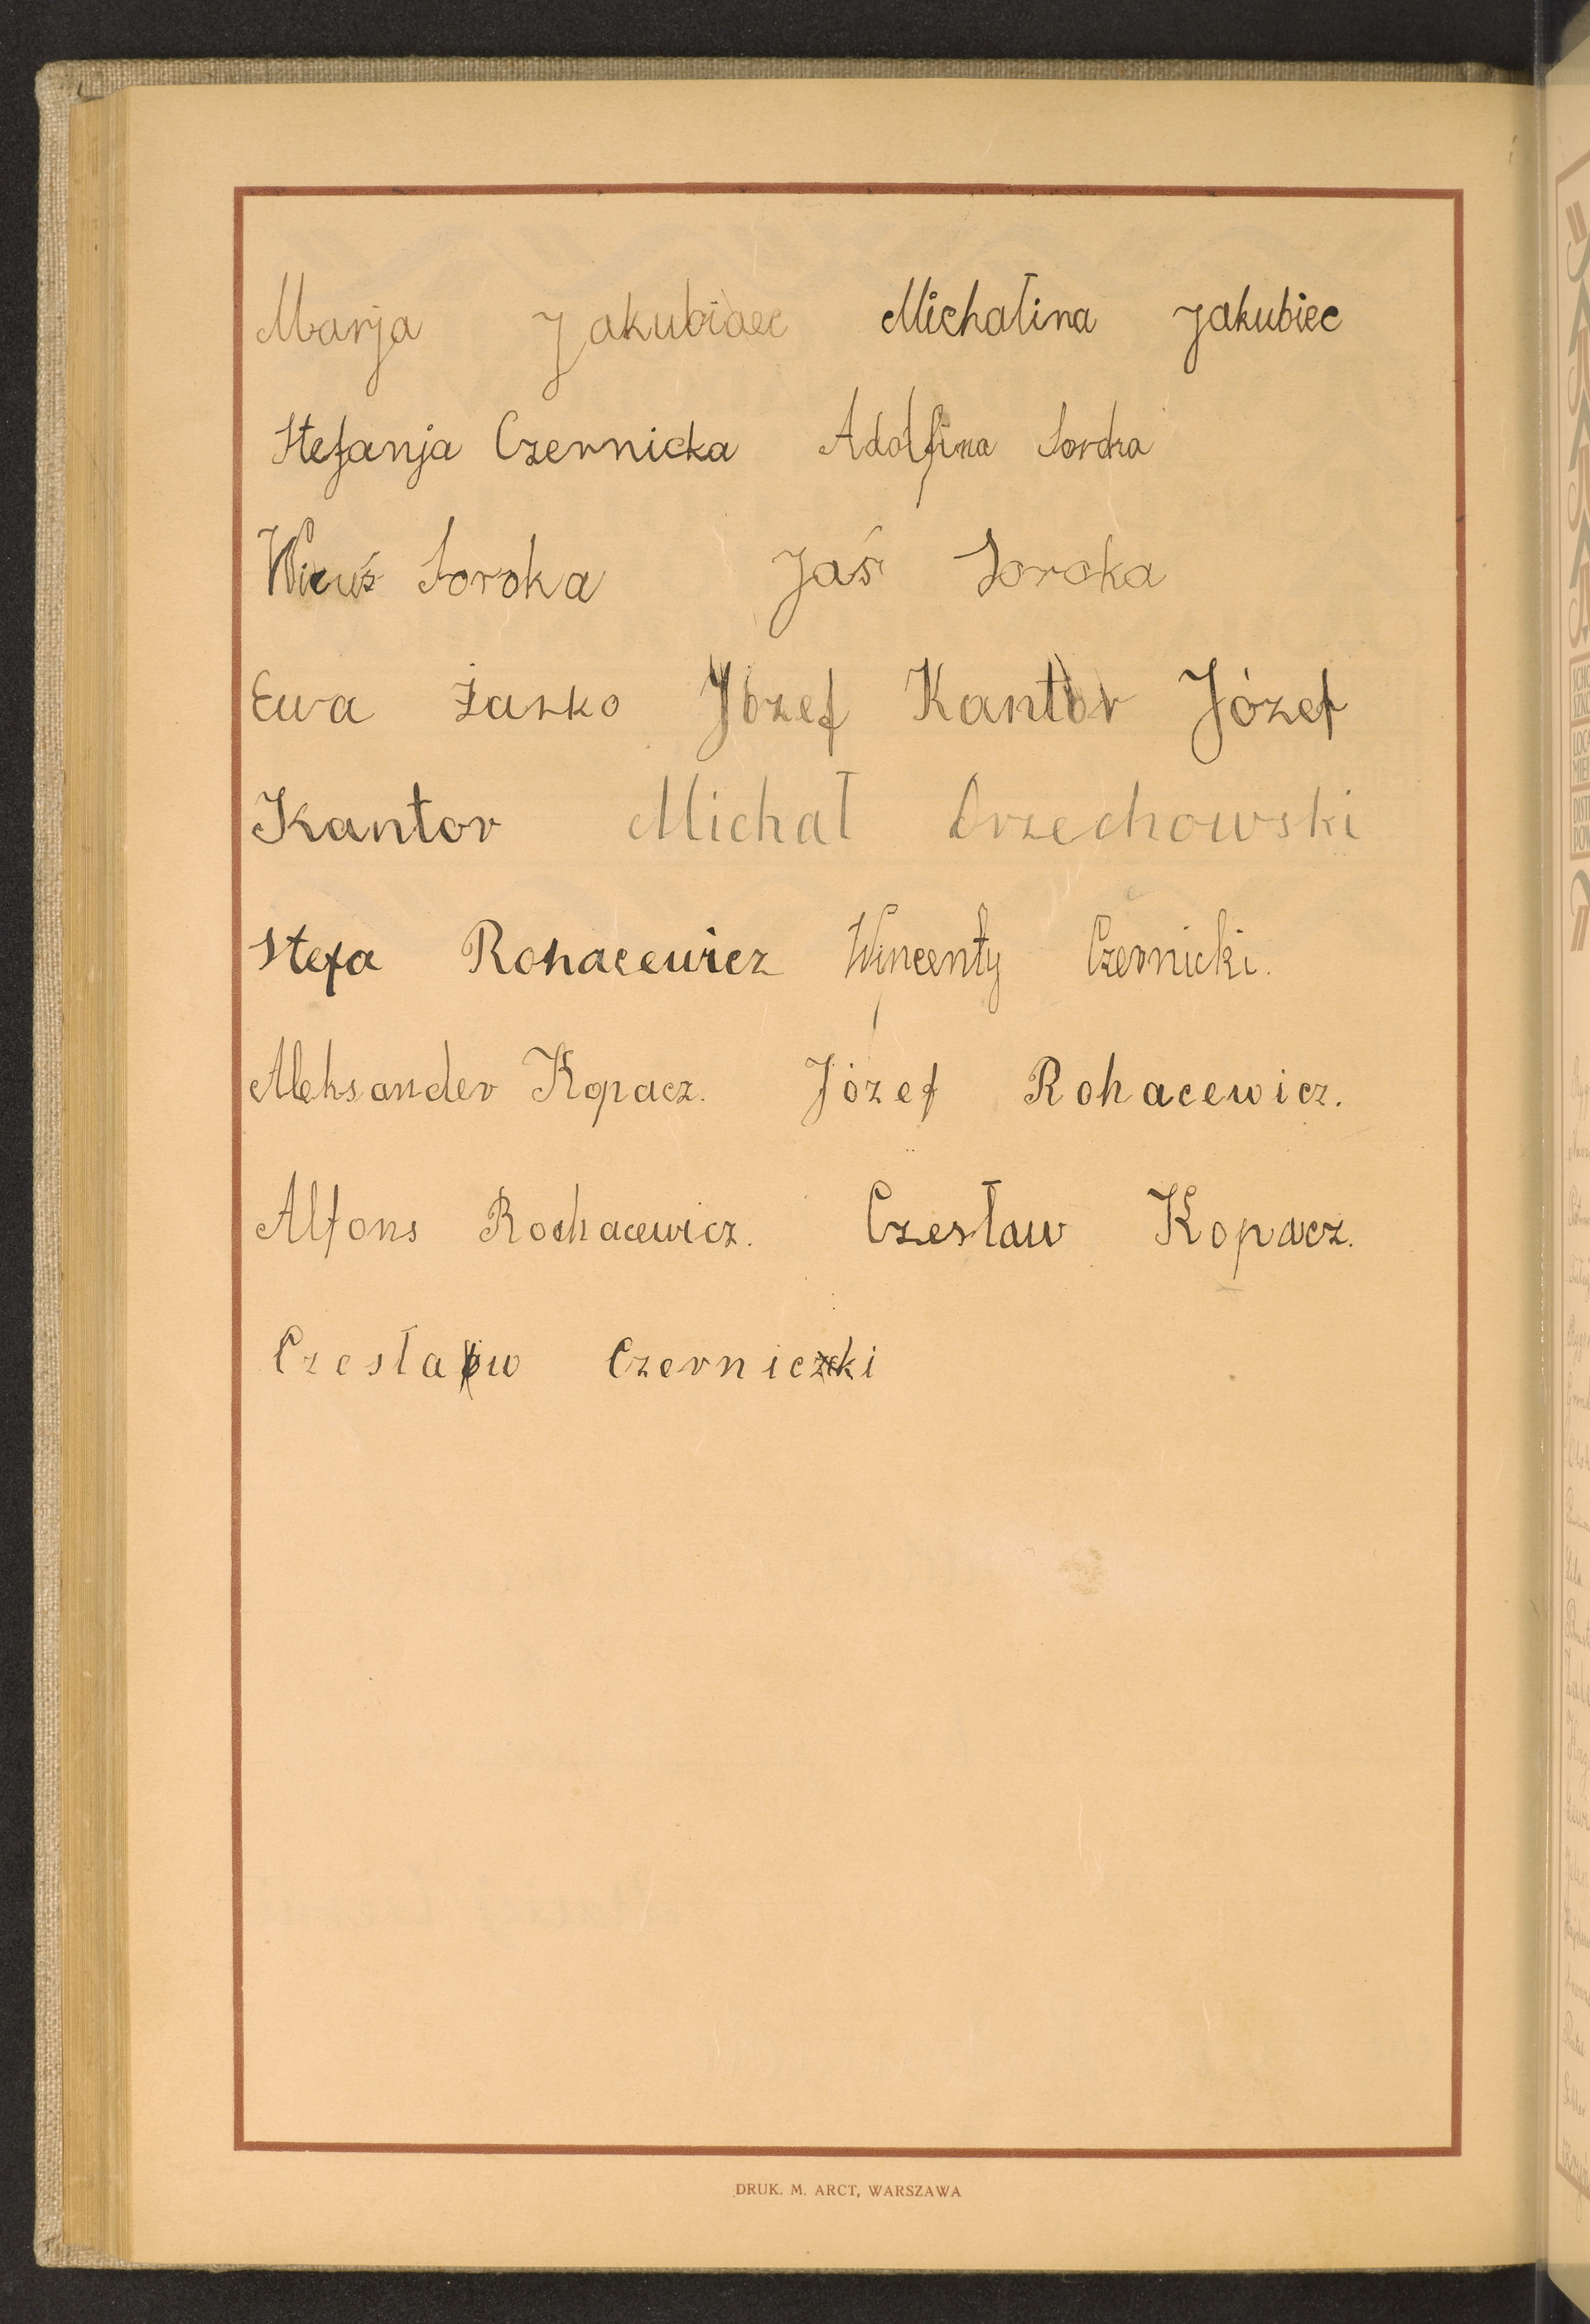 Marja Jakubiaec Michalina Jakubiec
Stefanja Czernicka Adolfina Soroka
Wicuś Soroka Jaś Soroka
Ewa Żasko Józef Kantor Józef
Kantor Michał Orzechowski
Stefa Rohacewicz Wincenty Czernicki.
Aleksander Kopacz. Józef Rohacewicz.
Alfons Rochacewicz. Czesław Kopacz.
Czesław Czernicki
DRUK. M. ARCT, WARSZAWA